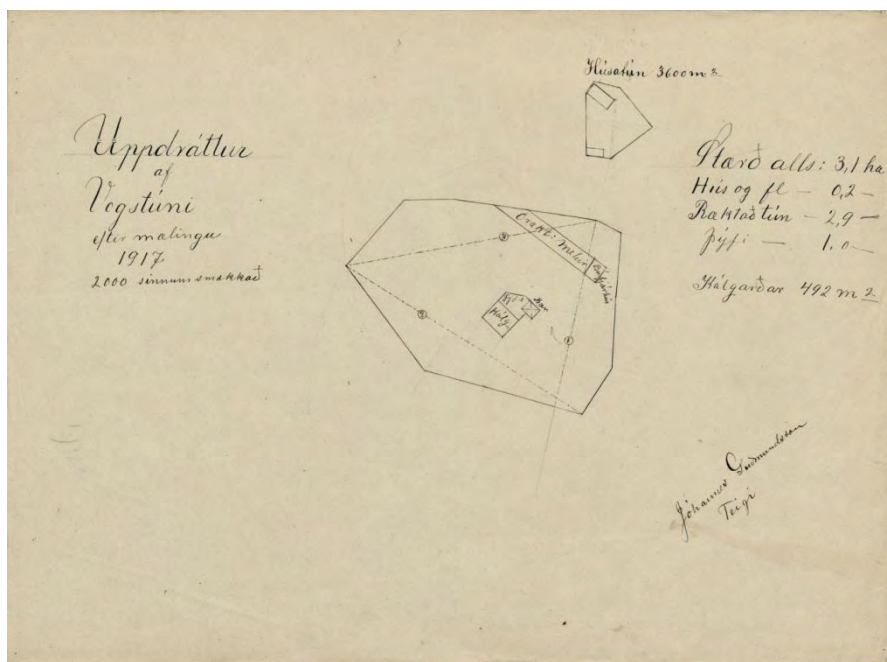 Uppdráttur
af
Vogstúni
eftir mælingu
1917
2000 sinnum smækkað
Húsatún 3600 m 2
Stærð alls: 3,1 ha
Hús og fl — 0,2 —
Ræktað tún — 2,9 —
Þýfi — 1.0 —
Kálgarðar 492 m 2
Órækt: Melur
Kálg
3
2
1
Jóhannes Guðmundsson
Teigi